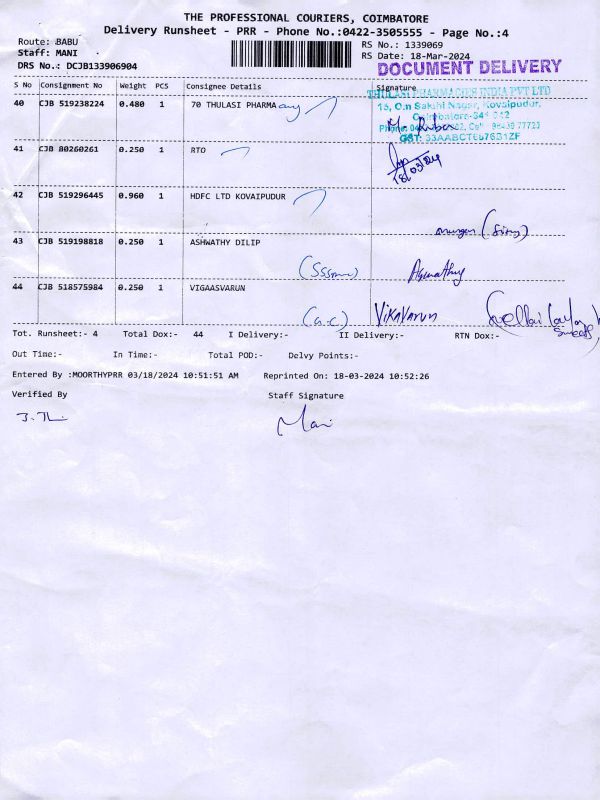 THE PROFESSIONAL COURIERS, COIMBATORE
Delivery Runsheet - PRR - Phone No.:0422-3505555 - Page No.:4
Route: BABU
Staff: MANI
DRS No.: DCJB133906904
RS No.: 1339069
RS Date: 18-Mar-2024
DOCUMENT DELIVERY
S No Consignment No Weight PCS Consignee Details Signature
40 CJB 519238224 0.480 1 70 THULASI PHARMA
THULASI PHARMACIES INDIA PVT LTD
15, Om Sakthi Nagar, Kovaipudur,
Coimbatore-641 042
41 CJB 80260261 0.250 1 RTO
18/03/24
42 CJB 519296445 0.960 1 HDFC LTD KOVAIPUDUR
murugan
43 CJB 519198818 0.250 1 ASHWATHY DILIP
Aswathy
44 CJB 518575984 0.250 1 VIGAASVARUN
VIKAVARUN
Tot. Runsheet:- 4 Total Dox:- 44 I Delivery:- II Delivery:- RTN Dox:-
Out Time:- In Time:- Total POD:- Delvy Points:-
Entered By :MOORTHYPRR 03/18/2024 10:51:51 AM Reprinted On: 18-03-2024 10:52:26
Verified By Staff Signature
Mani